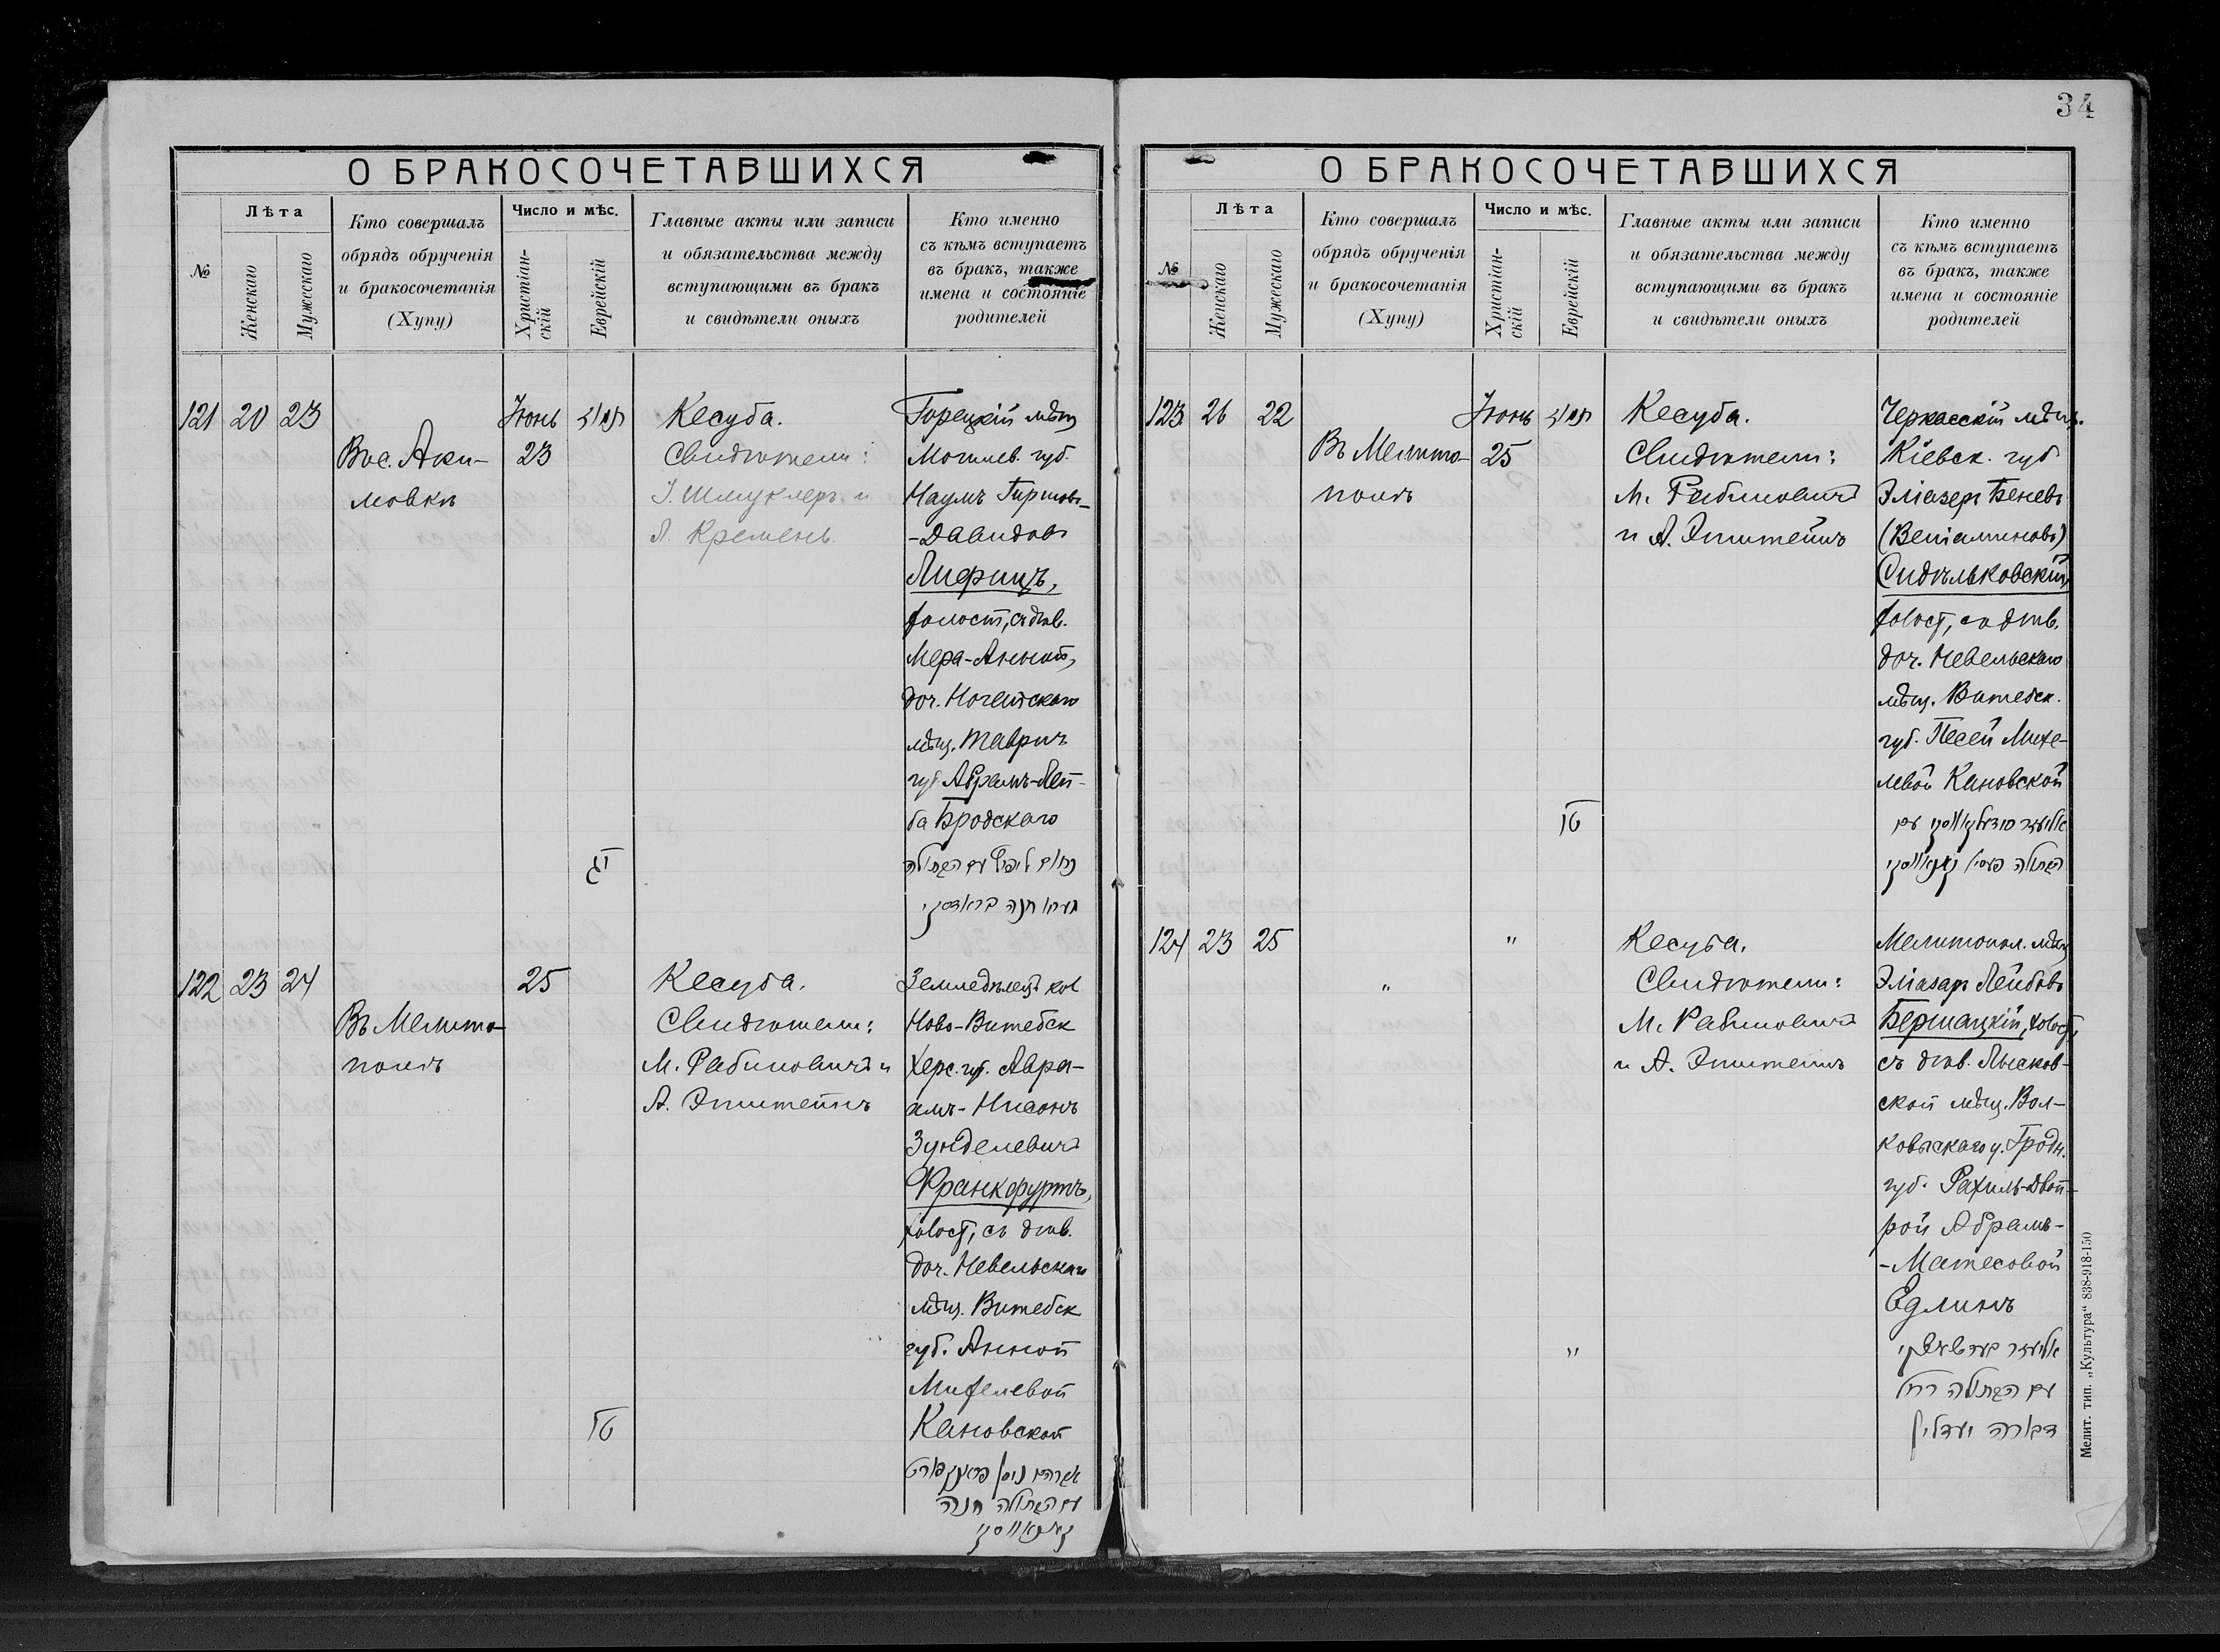 34
О БРАКОСОЧЕТАВШИХСЯ
№
Лѣта
Женскаго
Мужескаго
Кто совершалъ
обрядъ обрученія
и бракосочетанія
(Хупу)
Число и мѣс.
Христіан-
скій
Еврейскій
Главные акты или записи
и обязательства между
вступающими въ бракъ
и свидѣтели оныхъ
Кто именно
съ кѣмъ вступаетъ
въ бракъ, также
имена и состояніе
родителей
121 20 23
Во с. Аки-
мовкѣ
Іюнь
23
יג
Кесуба.
Свидѣтели:
І. Шмуклеръ и
Л. Кремень
Горецкій мѣщ
Могилев. губ.
Наумъ Гиршовъ-
-Давидовъ
Лифшицъ,
холост, съ дѣв.
Мера-Анной,
доч. Ногайскаго
мѣщ. Таврич
губ Абрамъ-Лей-
ба Бродскаго
122 23 24
Въ Мелито-
полѣ
25
טו
Кесуба.
Свидѣтели:
М. Рабиновичъ и
А. Эпштейнъ
Земледѣлецъ кол
Ново-Витебск
Херс. губ. Авра-
амъ-Нисонъ
Зунделевичъ
Франкфуртъ,
холост, съ дѣв.
доч. Невельскаго
мѣщ. Витебск
губ. Анной
Михелевой
Кановской
О БРАКОСОЧЕТАВШИХСЯ
№
Лѣта
Женскаго
Мужескаго
Кто совершалъ
обрядъ обрученія
и бракосочетанія
(Хупу)
Число и мѣс.
Христіан-
скій
Еврейскій
Главные акты или записи
и обязательства между
вступающими въ бракъ
и свидѣтели оныхъ
Кто именно
съ кѣмъ вступаетъ
въ бракъ, также
имена и состояніе
родителей
123 26 22
Въ Мелито-
полѣ
Іюнь
25
טו
Кесуба.
Свидѣтели:
М. Рабиновичъ
и А. Эпштейнъ
Черкасскій мѣщ.
Кіевск. губ
Эліазеръ Беневъ
(Веніаминовъ)
Сидѣльковскій,
холост, съ дѣв.
доч. Невельскаго
мѣщ. Витебск.
губ. Песей Михе-
левой Кановской
124 23 25
"
"
"
Кесуба.
Свидѣтели:
М. Рабиновичъ
и А. Эпштейнъ
Мелитопол. мѣщ
Эліазаръ Лейбовъ
Бершацкій, холост,
съ дѣв. Лысков-
ской мѣщ. Вол-
ковыскаго у. Гродн.
губ. Рахиль-Двой-
рой Абрамъ-
-Матесовой
Едлинъ
Мелит. тип. „Культура“ 838-918-150